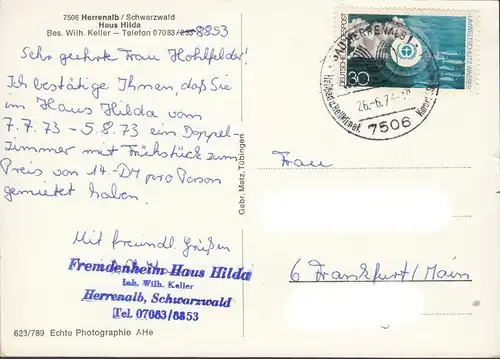 7506 Herrenalb / Schwarzwald
Haus Hilda
Bes. Wilh. Keller — Telefon 07083/ 8853
Sehr geehrte Frau Hohlfelder!
Ich bestätige Ihnen, daß Sie
im Haus Hilda vom
7.7.73 - 5.8.73 ein Doppel-
zimmer mit Frühstück zum
Preis von 14.- DM pro Person
gemietet haben.
Mit freundl. Grüßen
Fremdenheim Haus Hilda
Inh. Wilh. Keller
Herrenalb, Schwarzwald
Tel. 07083/8853
623/789 Echte Photographie AHe
Gebr. Metz, Tübingen
DEUTSCHE BUNDESPOST
30
UMWELTSCHUTZ WASSER
BAD HERRENALB 1
26.-6.7
7506
Frau
6 Frankfurt/Main